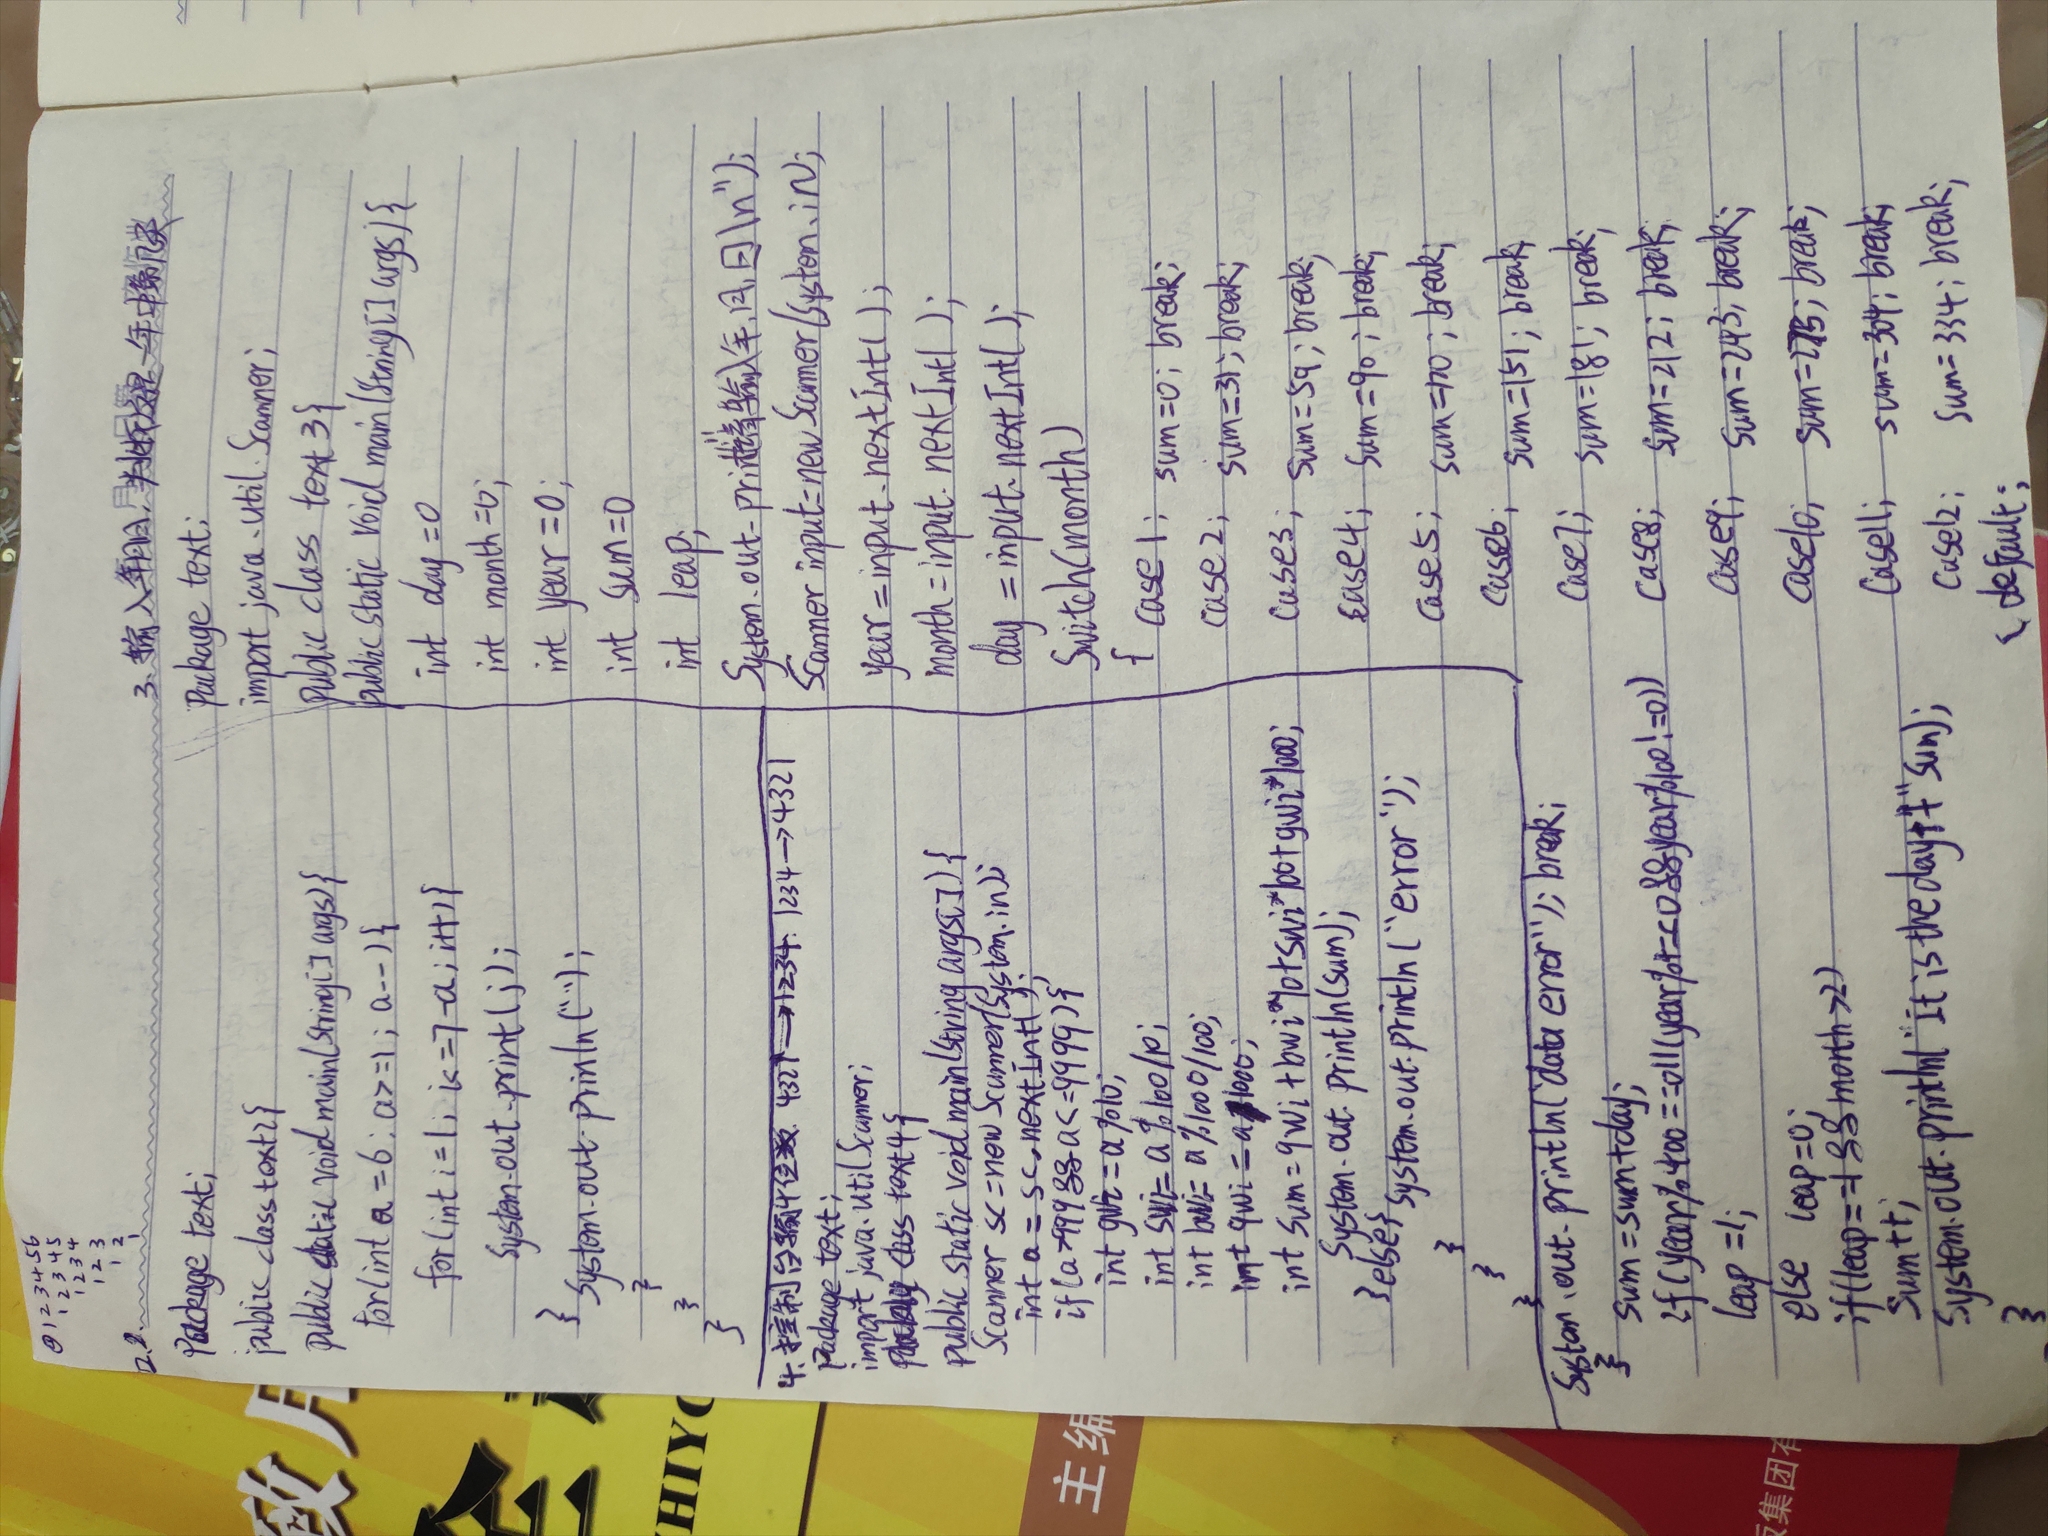 ① 1 2 3 4 5 6
1 2 3 4 5
1 2 3 4
1 2 3
1 2
1
2.2.
Package text;
public class text2{
public static void main(String[] args){
for(int a=6; a>=1; a--){
for(int i=1; i<=7-a; i++){
System.out.print(i);
}
System.out.println("");
}
}
}
4.控制台输4位数 4321→1234. 1234→4321
Package text;
import java.util Scanner;
class text4{
public static void main(String args[]){
Scanner sc=new Scanner(System.in);
int a=sc.nextInt();
if(a>999&&a<=9999){
int gwi=a%10;
int swi=a%100/10;
int bwi=a%1000/100;
int qwi=a/1000;
int sum=qwi+bwi*10+swi*100+gwi*1000;
System.out.println(sum);
}else{
System.out.println("error");
}
}
}
3.输入年月日,
Package text;
import java.util.Scanner;
public class text3{
public static void main(String[] args){
int day=0
int month=0;
int year=0;
int sum=0
int leap;
System.out.print("请输入年,月,日\n");
Scanner input=new Scanner(System.in);
year=input.nextInt();
month=input.nextInt();
day=input.nextInt();
Switch(month)
{
case1; sum=0; break;
case2; sum=31; break;
case3; sum=59; break;
case4; sum=90; break;
case5; sum=120; break;
case6; sum=151; break;
case7; sum=181; break;
case8; sum=212; break;
case9; sum=243; break;
case10; sum=273; break;
case11; sum=304; break;
case12; sum=334; break;
default:
System.out.println("data error"); break;
}
sum=sum+day;
if(year%400==0||(year%4==0&&year%100!=0))
leap=1;
else leap=0;
if(leap==1&&month>2)
sum++;
System.out.println("It is the day:"+sum);
}
主编